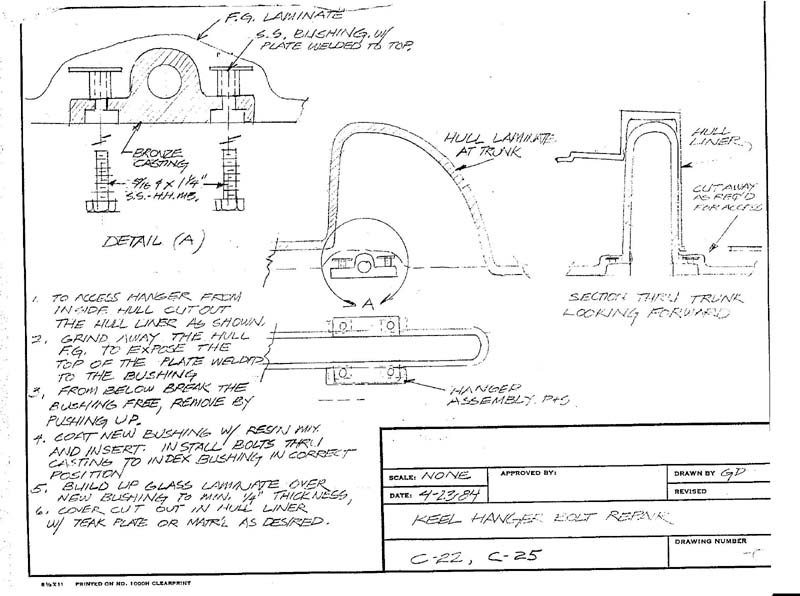 F.G. LAMINATE
S.S. BUSHING W/
PLATE WELDED TO TOP.
BRONZE
CASTING
5/16 φ X 1 1/4"
S.S.-H.H.MB.
DETAIL (A)
HULL LAMINATE
AT TRUNK
HULL
LINER
CUT AWAY
AS REQ'D
FOR ACCESS
A
SECTION THRU TRUNK
LOOKING FORWARD
HANGER
ASSEMBLY. P+S.
1. TO ACCESS HANGER FROM
INSIDE HULL CUT OUT
THE HULL LINER AS SHOWN.
2. GRIND AWAY THE HULL
F.G. TO EXPOSE THE
TOP OF THE PLATE WELDED
TO THE BUSHING
3. FROM BELOW BREAK THE
BUSHING FREE, REMOVE BY
PUSHING UP.
4. COAT NEW BUSHING W/ RESIN MIX
AND INSERT. INSTALL BOLTS THRU
CASTING TO INDEX BUSHING IN CORRECT
POSITION
5. BUILD UP GLASS LAMINATE OVER
NEW BUSHING TO MIN. 1/4" THICKNESS,
6. COVER CUT OUT IN HULL LINER
W/ TEAK PLATE OR MAT'L AS DESIRED.
SCALE: NONE
APPROVED BY:
DRAWN BY GD
DATE: 4-23-84
REVISED
KEEL HANGER BOLT REPAIR
C-22, C-25
DRAWING NUMBER
8½X11 PRINTED ON NO. 1000H CLEARPRINT